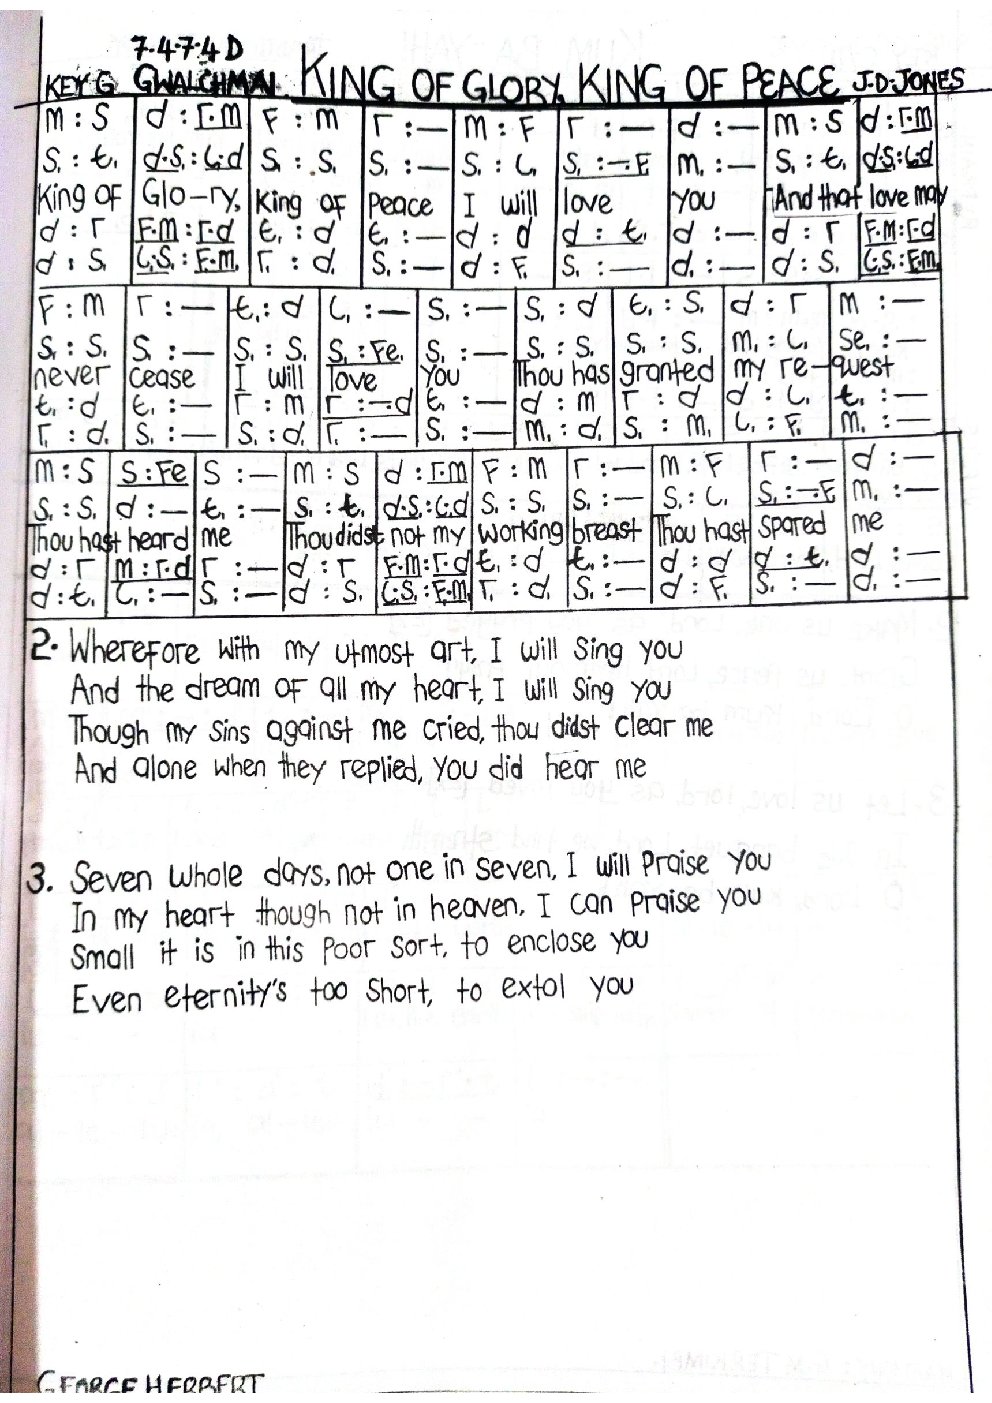 7.4.7.4 D
KEY G GWALCHMAI KING OF GLORY, KING OF PEACE J.D. JONES
m : s | d : r.m | f : m | r : — | m : f | r : — | d : — | m : s | d : r.m
s, : t, | d.s, : l,.d | s, : s, | s, : — | s, : l, | s, : —.f | m, : — | s, : t, | d.s, : l,.d
King of | Glo-ry, | King of | Peace | I will | love | you | And that | love may
d : r | f.m : r.d | t, : d | t, : — | d : d | d : t, | d : — | d : r | f.m : r.d
d : s, | l,.s, : f,.m, | r, : d, | s, : — | d : f, | s, : — | d, : — | d : s, | l,.s, : f,.m,
f : m | r : — | t, : d | l, : — | s, : — | s, : d | t, : s, | d : r | m : —
s, : s, | s, : — | s, : s, | s, : fe, | s, : — | s, : s, | s, : s, | m, : l, | se, : —
never | cease | I will | love | you | Thou has | granted | my re- | quest
t, : d | t, : — | r : m | r : —.d | t, : — | d : m | r : d | d : l, | t, : —
r, : d, | s, : — | s, : d, | r, : — | s, : — | m, : d, | s, : m, | l, : f, | m, : —
m : s | s : fe | s : — | m : s | d : r.m | f : m | r : — | m : f | r : — | d : —
s, : s, | d : — | t, : — | s, : t, | d.s, : l,.d | s, : s, | s, : — | s, : l, | s, : —.f | m, : —
Thou hast | heard | me | Thou didst | not my | working | breast | Thou hast | spared | me
d : r | m : r.d | r : — | d : r | f.m : r.d | t, : d | t, : — | d : d | d : t, | d : —
d : t, | l, : — | s, : — | d : s, | l,.s, : f,.m, | r, : d, | s, : — | d : f, | s, : — | d, : —
2. Wherefore with my utmost art, I will sing you
And the dream of all my heart, I will sing you
Though my sins against me cried, thou didst clear me
And alone when they replied, you did hear me
3. Seven whole days, not one in seven, I will praise you
In my heart though not in heaven, I can praise you
Small it is in this poor sort, to enclose you
Even eternity's too short, to extol you
GEORGE HERBERT